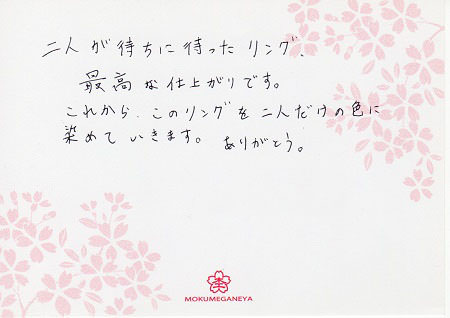 二人が待ちに待ったリング、
最高な仕上がりです。
これから、このリングを二人だけの色に
染めていきます。ありがとう。
MOKUMEGANEYA